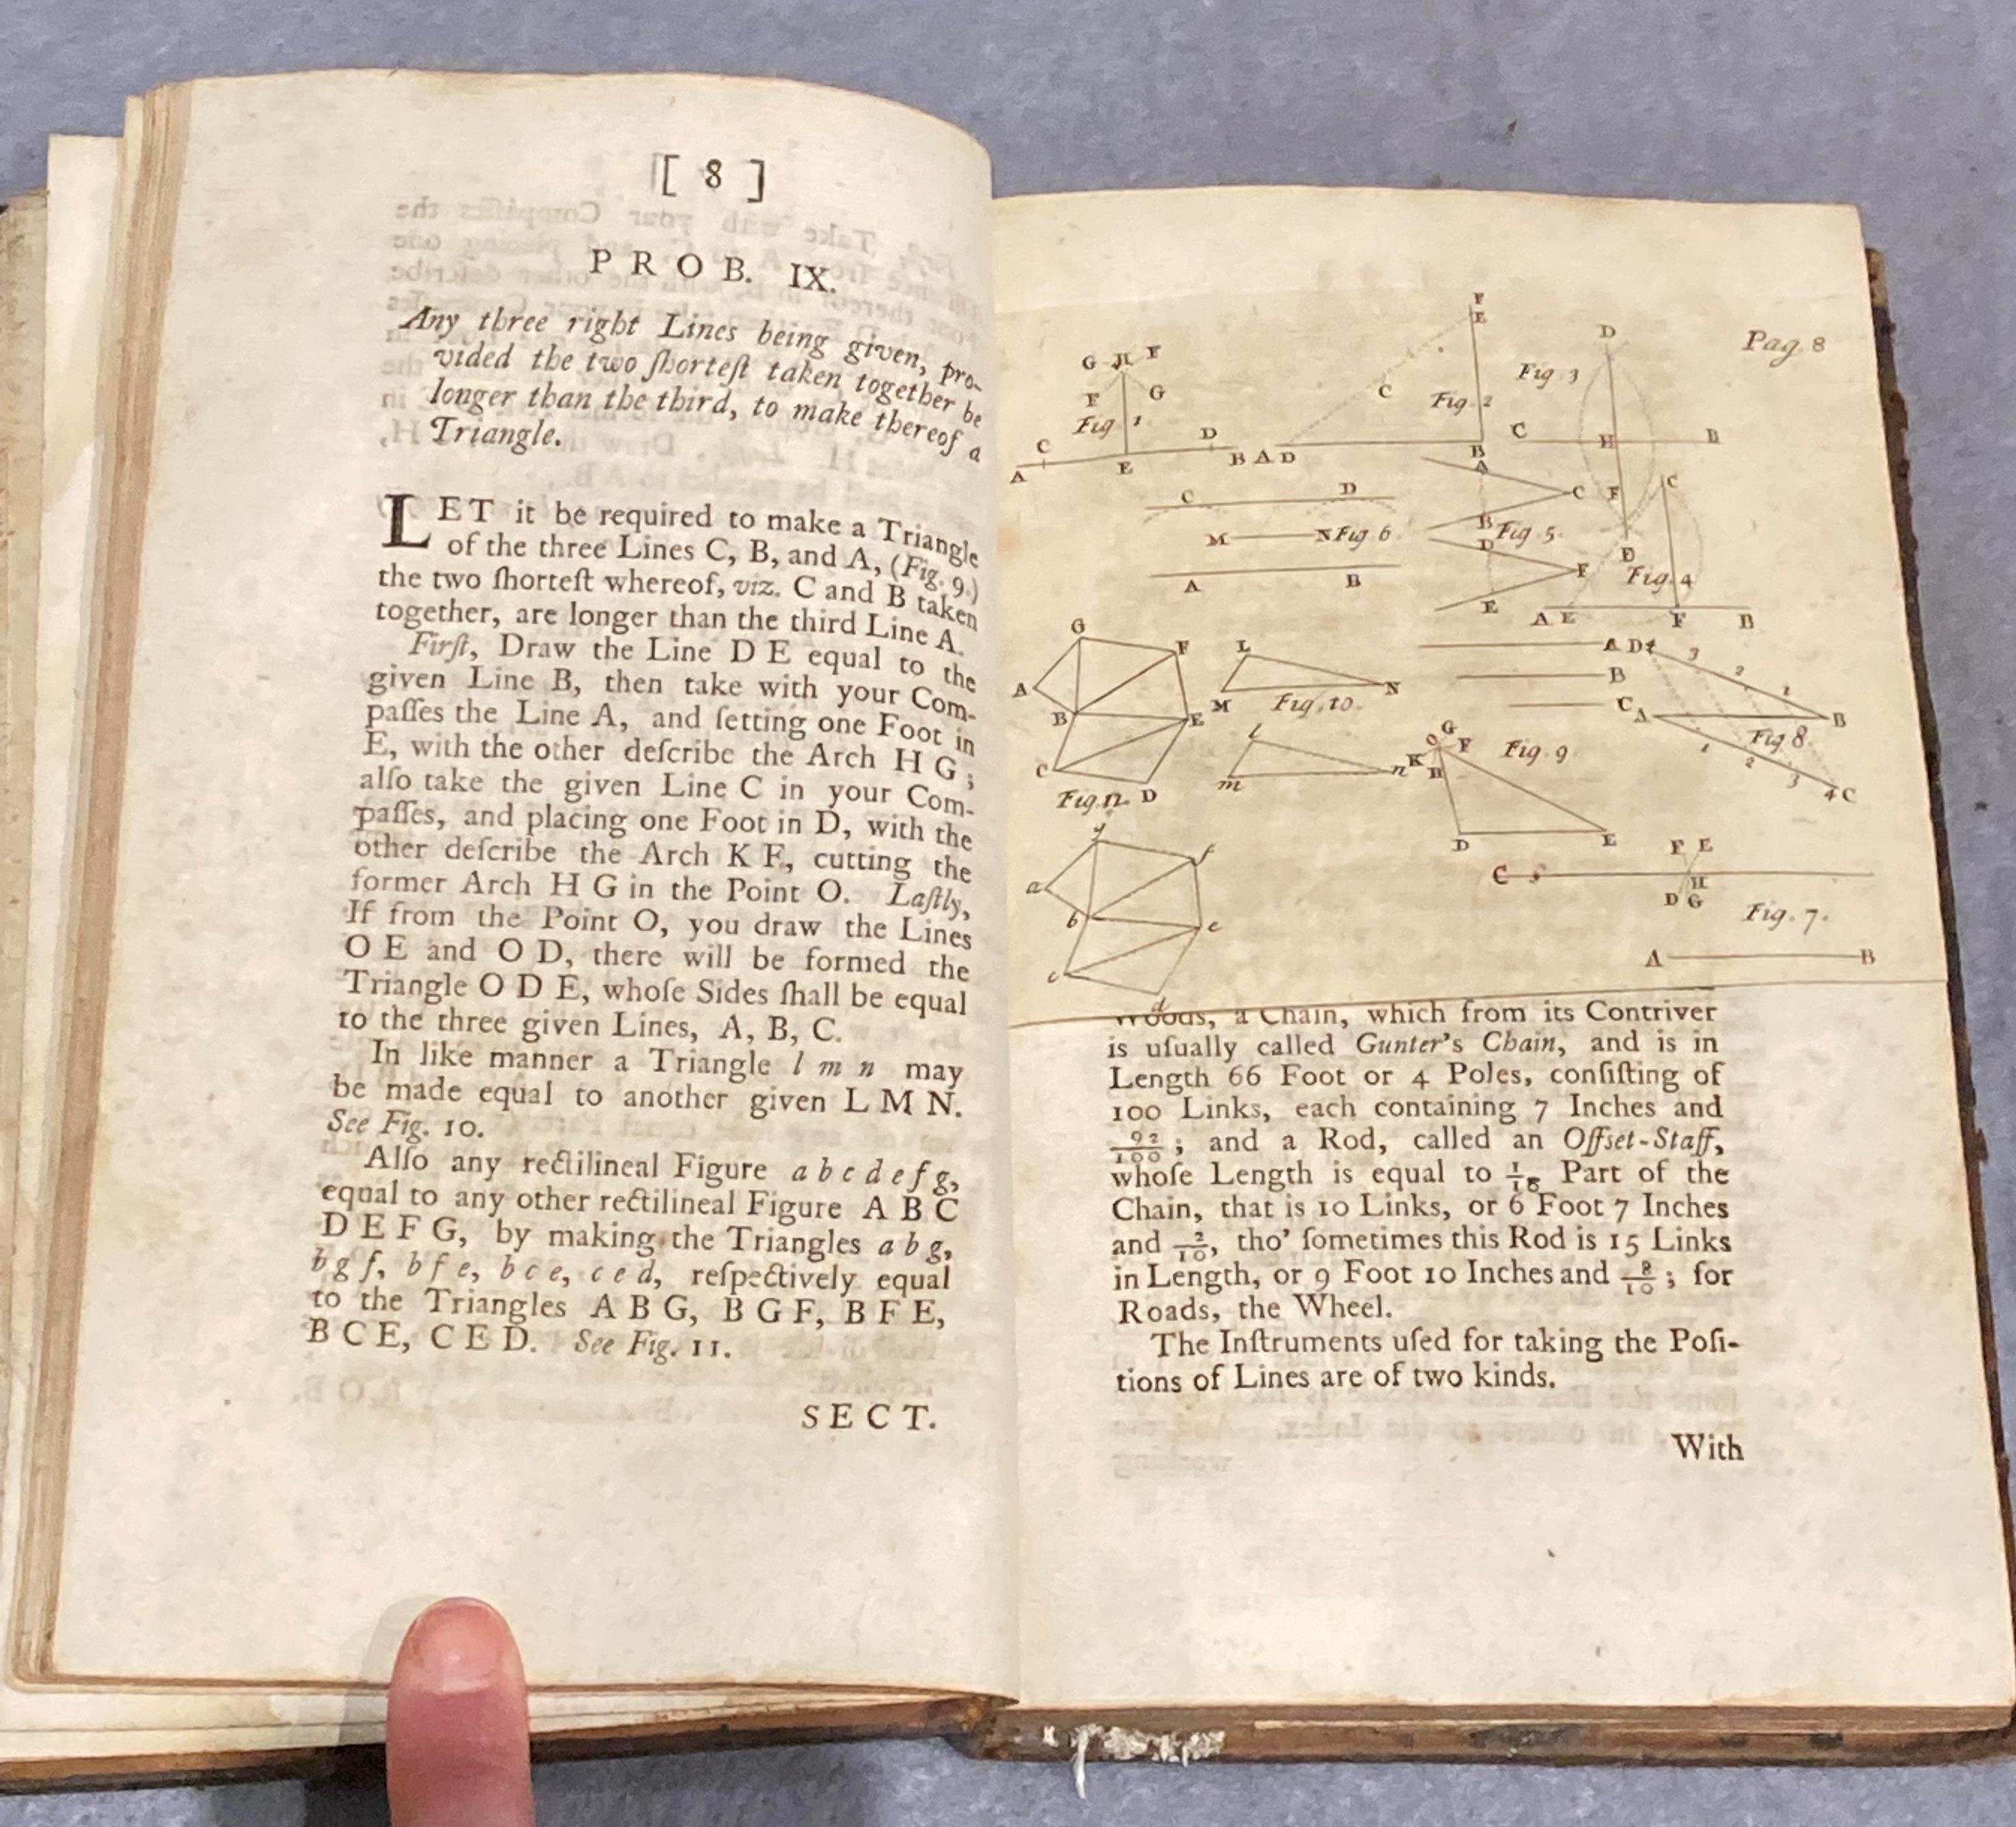 [ 8 ]
PROB. IX.
Any three right Lines being given, pro-
vided the two ſhorteſt taken together be
longer than the third, to make thereof a
Triangle.
LET it be required to make a Triangle
of the three Lines C, B, and A, (Fig. 9.)
the two ſhorteſt whereof, viz. C and B taken
together, are longer than the third Line A.
Firſt, Draw the Line D E equal to the
given Line B, then take with your Com-
paſſes the Line A, and ſetting one Foot in
E, with the other deſcribe the Arch H G;
alſo take the given Line C in your Com-
paſſes, and placing one Foot in D, with the
other deſcribe the Arch K F, cutting the
former Arch H G in the Point O. Laſtly,
If from the Point O, you draw the Lines
O E and O D, there will be formed the
Triangle O D E, whoſe Sides ſhall be equal
to the three given Lines, A, B, C.
In like manner a Triangle l m n may
be made equal to another given L M N.
See Fig. 10.
Alſo any rectilineal Figure a b c d e f g,
equal to any other rectilineal Figure A B C
D E F G, by making the Triangles a b g,
b g f, b f e, b c e, c e d, reſpectively equal
to the Triangles A B G, B G F, B F E,
B C E, C E D. See Fig. 11.
SECT.
Pag. 8
G H F
F G
Fig 1.
C D
A E B
F
E
C
Fig. 2
A D B
D
Fig. 3
C H B
F
D
C D
M N Fig 6.
A B
A
C
B
Fig. 5.
D
F
E
C
Fig. 4
A E F B
G
F
A
B E
C
Fig. 11. D
L
M N
Fig. 10.
l
m n
A
B
C
D 4 3 2 1
A B
Fig 8.
1 2 3 4 C
G
O
K F
H
Fig. 9
D E
g
f
a
b e
c
d
F E
C H
D G
Fig. 7.
A B
Woods, a Chain, which from its Contriver
is uſually called Gunter's Chain, and is in
Length 66 Foot or 4 Poles, conſiſting of
100 Links, each containing 7 Inches and
92/100; and a Rod, called an Offset-Staff,
whoſe Length is equal to 1/10 Part of the
Chain, that is 10 Links, or 6 Foot 7 Inches
and 2/10, tho' ſometimes this Rod is 15 Links
in Length, or 9 Foot 10 Inches and 8/10; for
Roads, the Wheel.
The Inſtruments uſed for taking the Poſi-
tions of Lines are of two kinds.
With